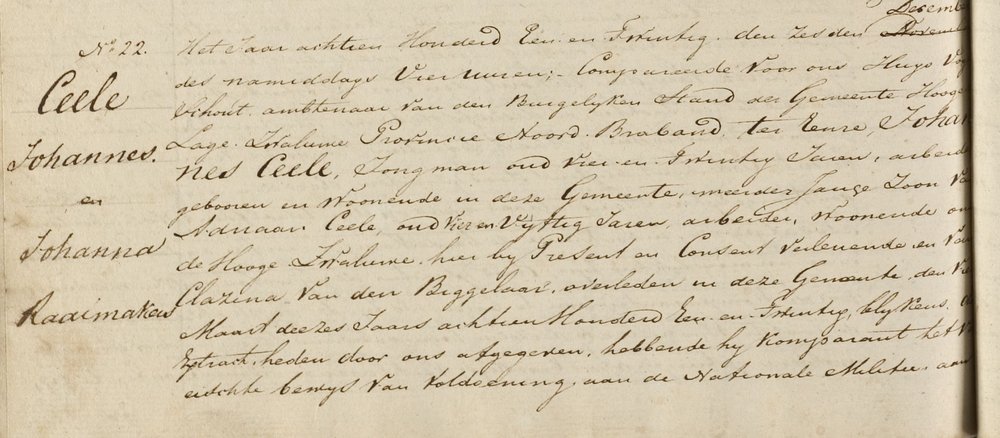 No 22.
Ceele
Johannes.
en
Johanna
Raaimakers
Decemb
Het Jaar achtien Honderd Een en Twintig. den zesden Novem
des namiddags Vier uuren;- Compareerde voor ons Hugo
Schout. ambtenaar van den Burgelyken Stand der Gemeente Hooge
Lage Zwaluwe Provincie Noord Braband, ter Eenre, Johan
nes Ceele, Jongman oud vier-en-Twintig Jaren, arbeide
gebooren en Woonende in deze Gemeente, meerder Jarige Zoon Va
Adriaan Ceele, oud Vier en Vyftig Jaren, arbeider, Woonende
de Hooge Zwaluwe. hier by Present en Consent verleenende en Va
Clazina Van den Biggelaar, overleden in deze Gemeente, den
Maart deezes Jaars achtien Honderd Een-en-Twintig, blykens.
Extract, heden door ons afgegeven, hebbende hy Komparant het
eischte bewys Van Voldoening, aan de Nationale Militie,